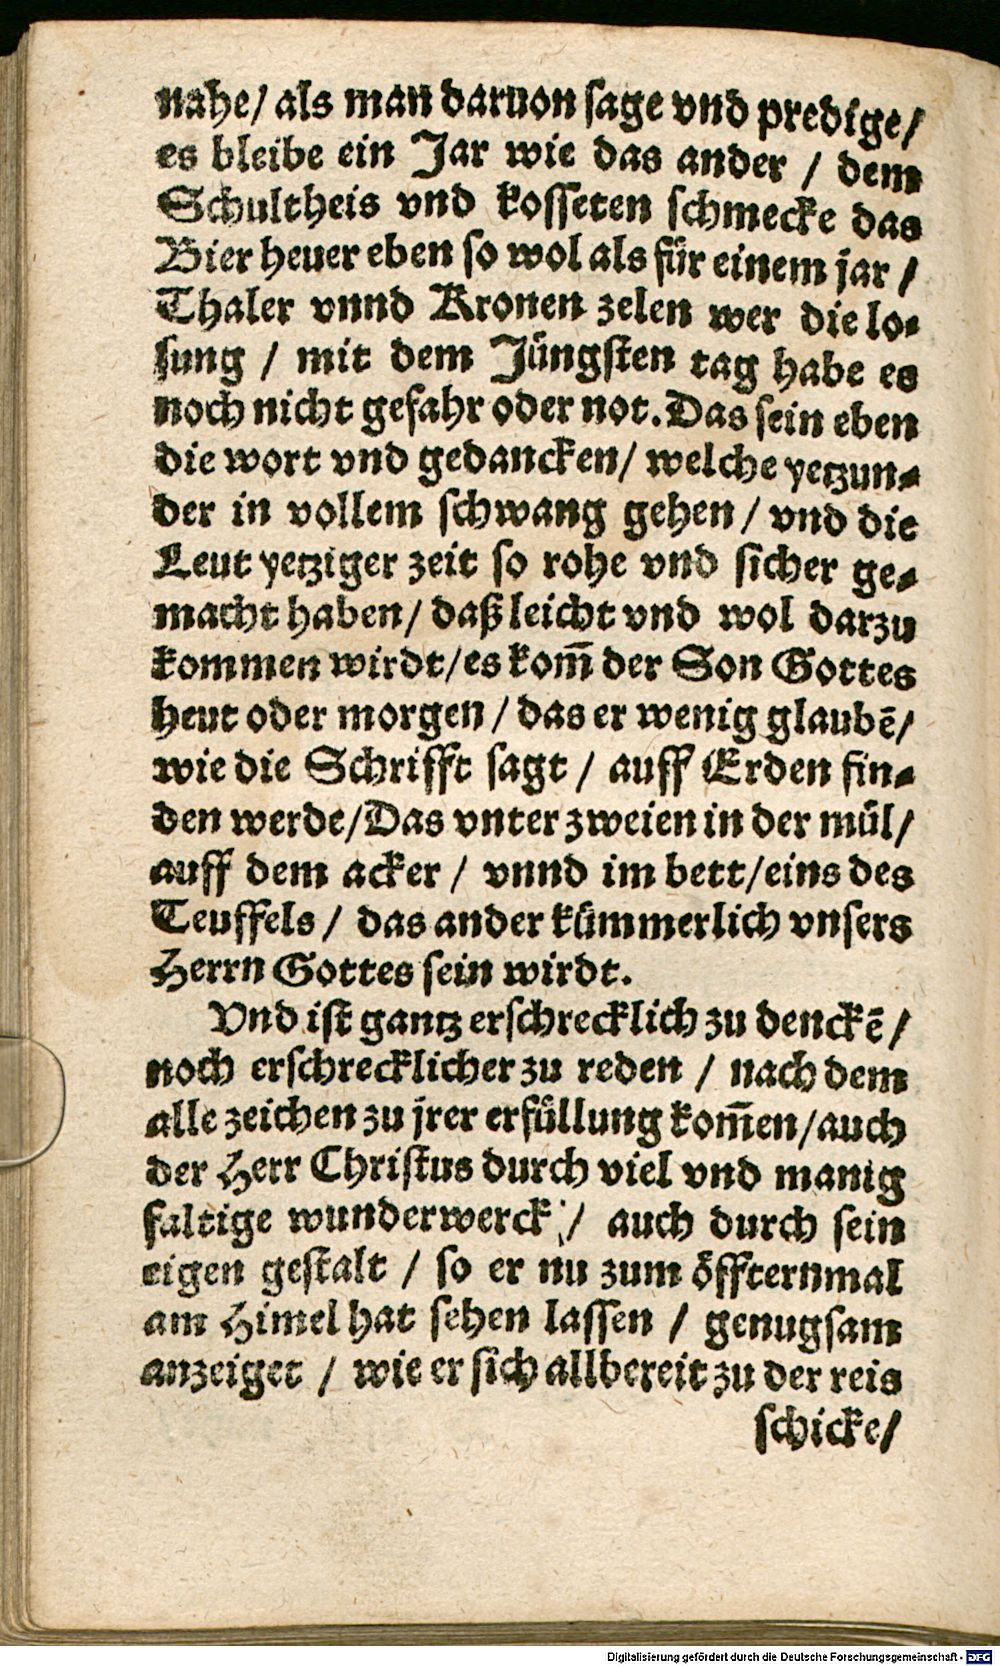 nahe/ als man daruon sage vnd predige/
es bleibe ein Jar wie das ander / dem
Schultheis vnd kosseten schmecke das
Bier heuer eben so wol als für einem jar /
Thaler vnnd Kronen zelen wer die lo-
sung / mit dem Jüngsten tag habe es
noch nicht gefahr oder not. Das sein eben
die wort vnd gedancken/ welche yetzun-
der in vollem schwang gehen / vnd die
Leut yetziger zeit so rohe vnd sicher ge-
macht haben/ daß leicht vnd wol darzu
kommen wirdt/ es kom̅ der Son Gottes
heut oder morgen / das er wenig glaubē/
wie die Schrifft sagt / auff Erden fin-
den werde/ Das vnter zweien in der mül/
auff dem acker / vnnd im bett/ eins des
Teuffels / das ander kümmerlich vnsers
Herrn Gottes sein wirdt.
Vnd ist gantz erschrecklich zu denckē/
noch erschrecklicher zu reden / nach dem
alle zeichen zu jrer erfüllung kom̅en/ auch
der Herr Christus durch viel vnd manig
faltige wunderwerck / auch durch sein
eigen gestalt / so er nu zum öffternmal
am Himel hat sehen lassen / genugsam
anzeiget / wie er sich allbereit zu der reis
schicke/
Digitalisierung gefördert durch die Deutsche Forschungsgemeinschaft - DFG